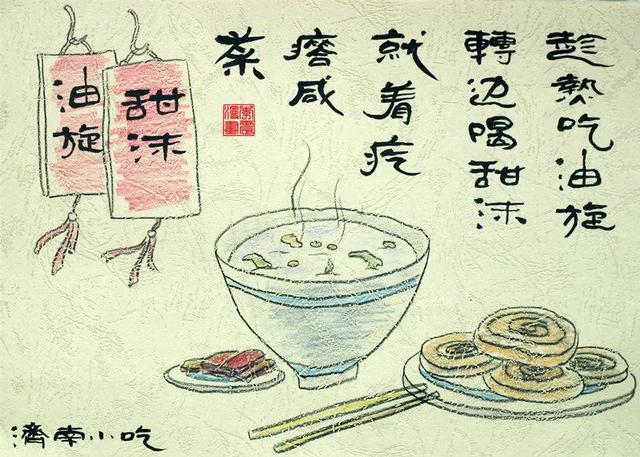 趁熱吃油旋
轉边喝甜沫
就着疙
瘩咸
菜
甜沫
油旋
濟南小吃